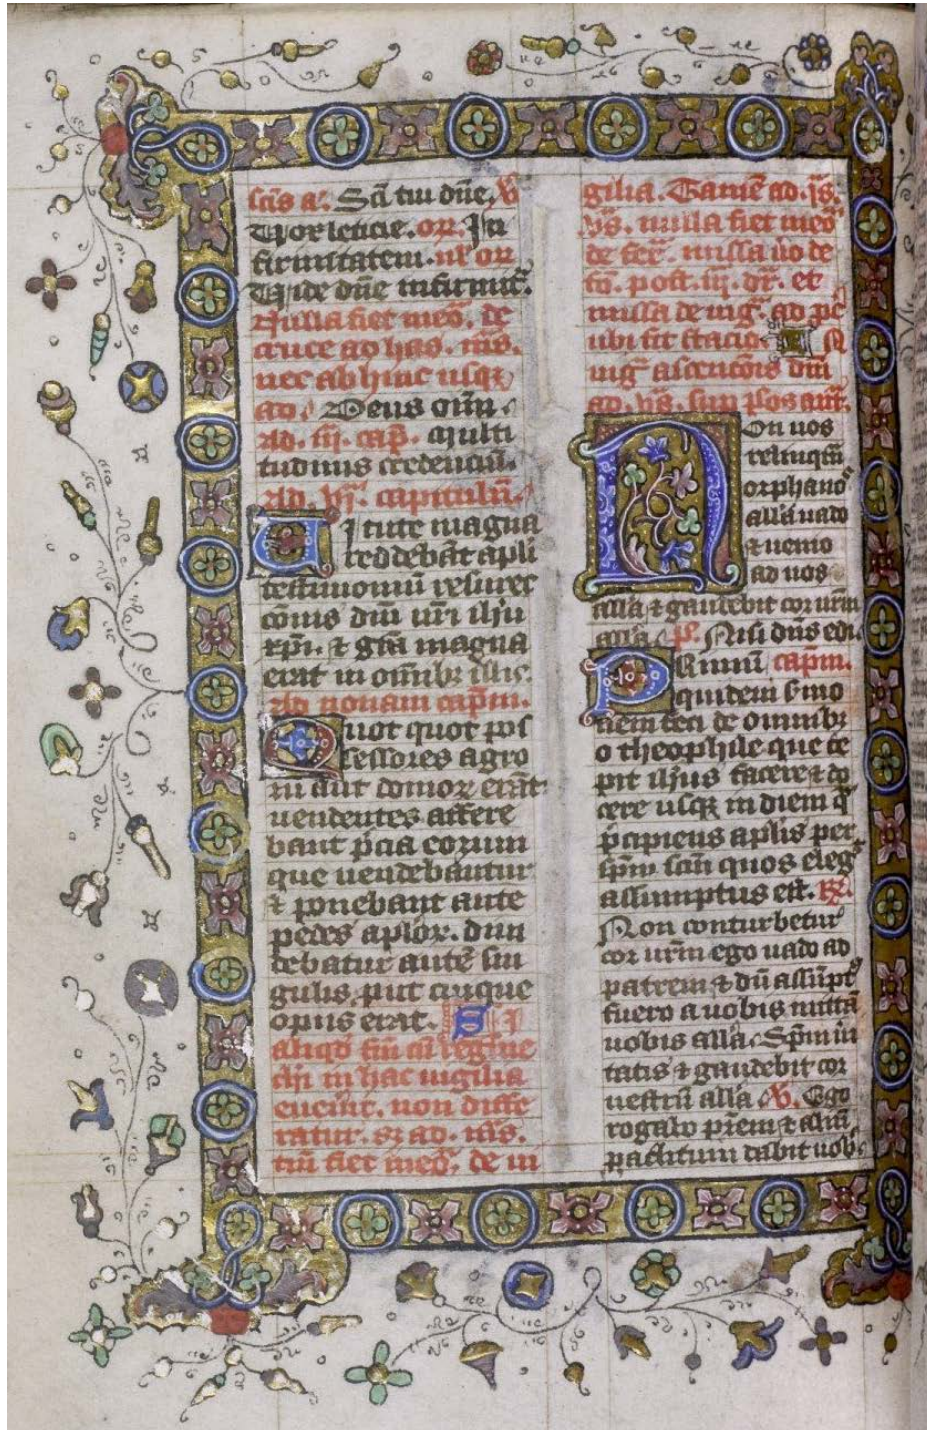 scīs a. Scī tui dn̄e. V̄
Vox leticie. or̄. In
firmitatem. ul' or̄
Vide dn̄e infirmit.
Nulla fiet meō. de
cruce ad has. vās.
nec abhinc usqꝫ
ad. Deus om̄.
Ad. iij. cap̄. Multi
tudinis credenciū.
Ad. vj. capitulū.
Virtute magna
reddebāt apli
testimoniū resurec
cōnis dn̄i nr̄i ihu
xpi. ⁊ grā magna
erat in omībꝫ illis.
Ad nonam cap̄tm.
Quot quot pos
sessores agro
rū aut domoꝝ erāt
uendentes affere
bant p̄cia eorum
que uendebantur
⁊ ponebant ante
pedes aploꝝ. diui
debatur autē sin
gulis put cuique
opus erat. Si
aliqd' fm̄ cū regime
chi in hac uigilia
euenit. non diffe
ratur. sꝫ ad. vās.
tm̄ fiet meō. de ui
gilia. Tamē ad. js.
vs. nulla fiet meō
de fer̄. missa u̇o de
fō. post. iij. dr̄. et
missa de uig. ad pc̄
ubi fit stacio. In
uig ascencōis dn̄i
ad. vs. sup p̄sos ant.
Non uos
relinquā
orphanos
alla uado
⁊ uenio
ad uos
alla ⁊ gaudebit cor ur̄m
alla. ps. Nisi dn̄s edi.
Primū cap̄m.
quidem s̄mo
nem feci de omnibꝫ
o theophile que ce
pit ihus facere ⁊ do
cere usqꝫ in diem q̄
p̄cipiens aplis per
sp̄m scm̄ quos eleḡ
assumptus est. R̄.
Non conturbetur
cor ur̄m ego uado ad
patrem ⁊ dū assūpt9
fuero a uobis mittā
uobis alla. Sp̄m ū
tatis ⁊ gaudebit cor
uestrū alla. V̄. Ego
rogabo pr̄em ⁊ aliū
paclitum dabit uob.